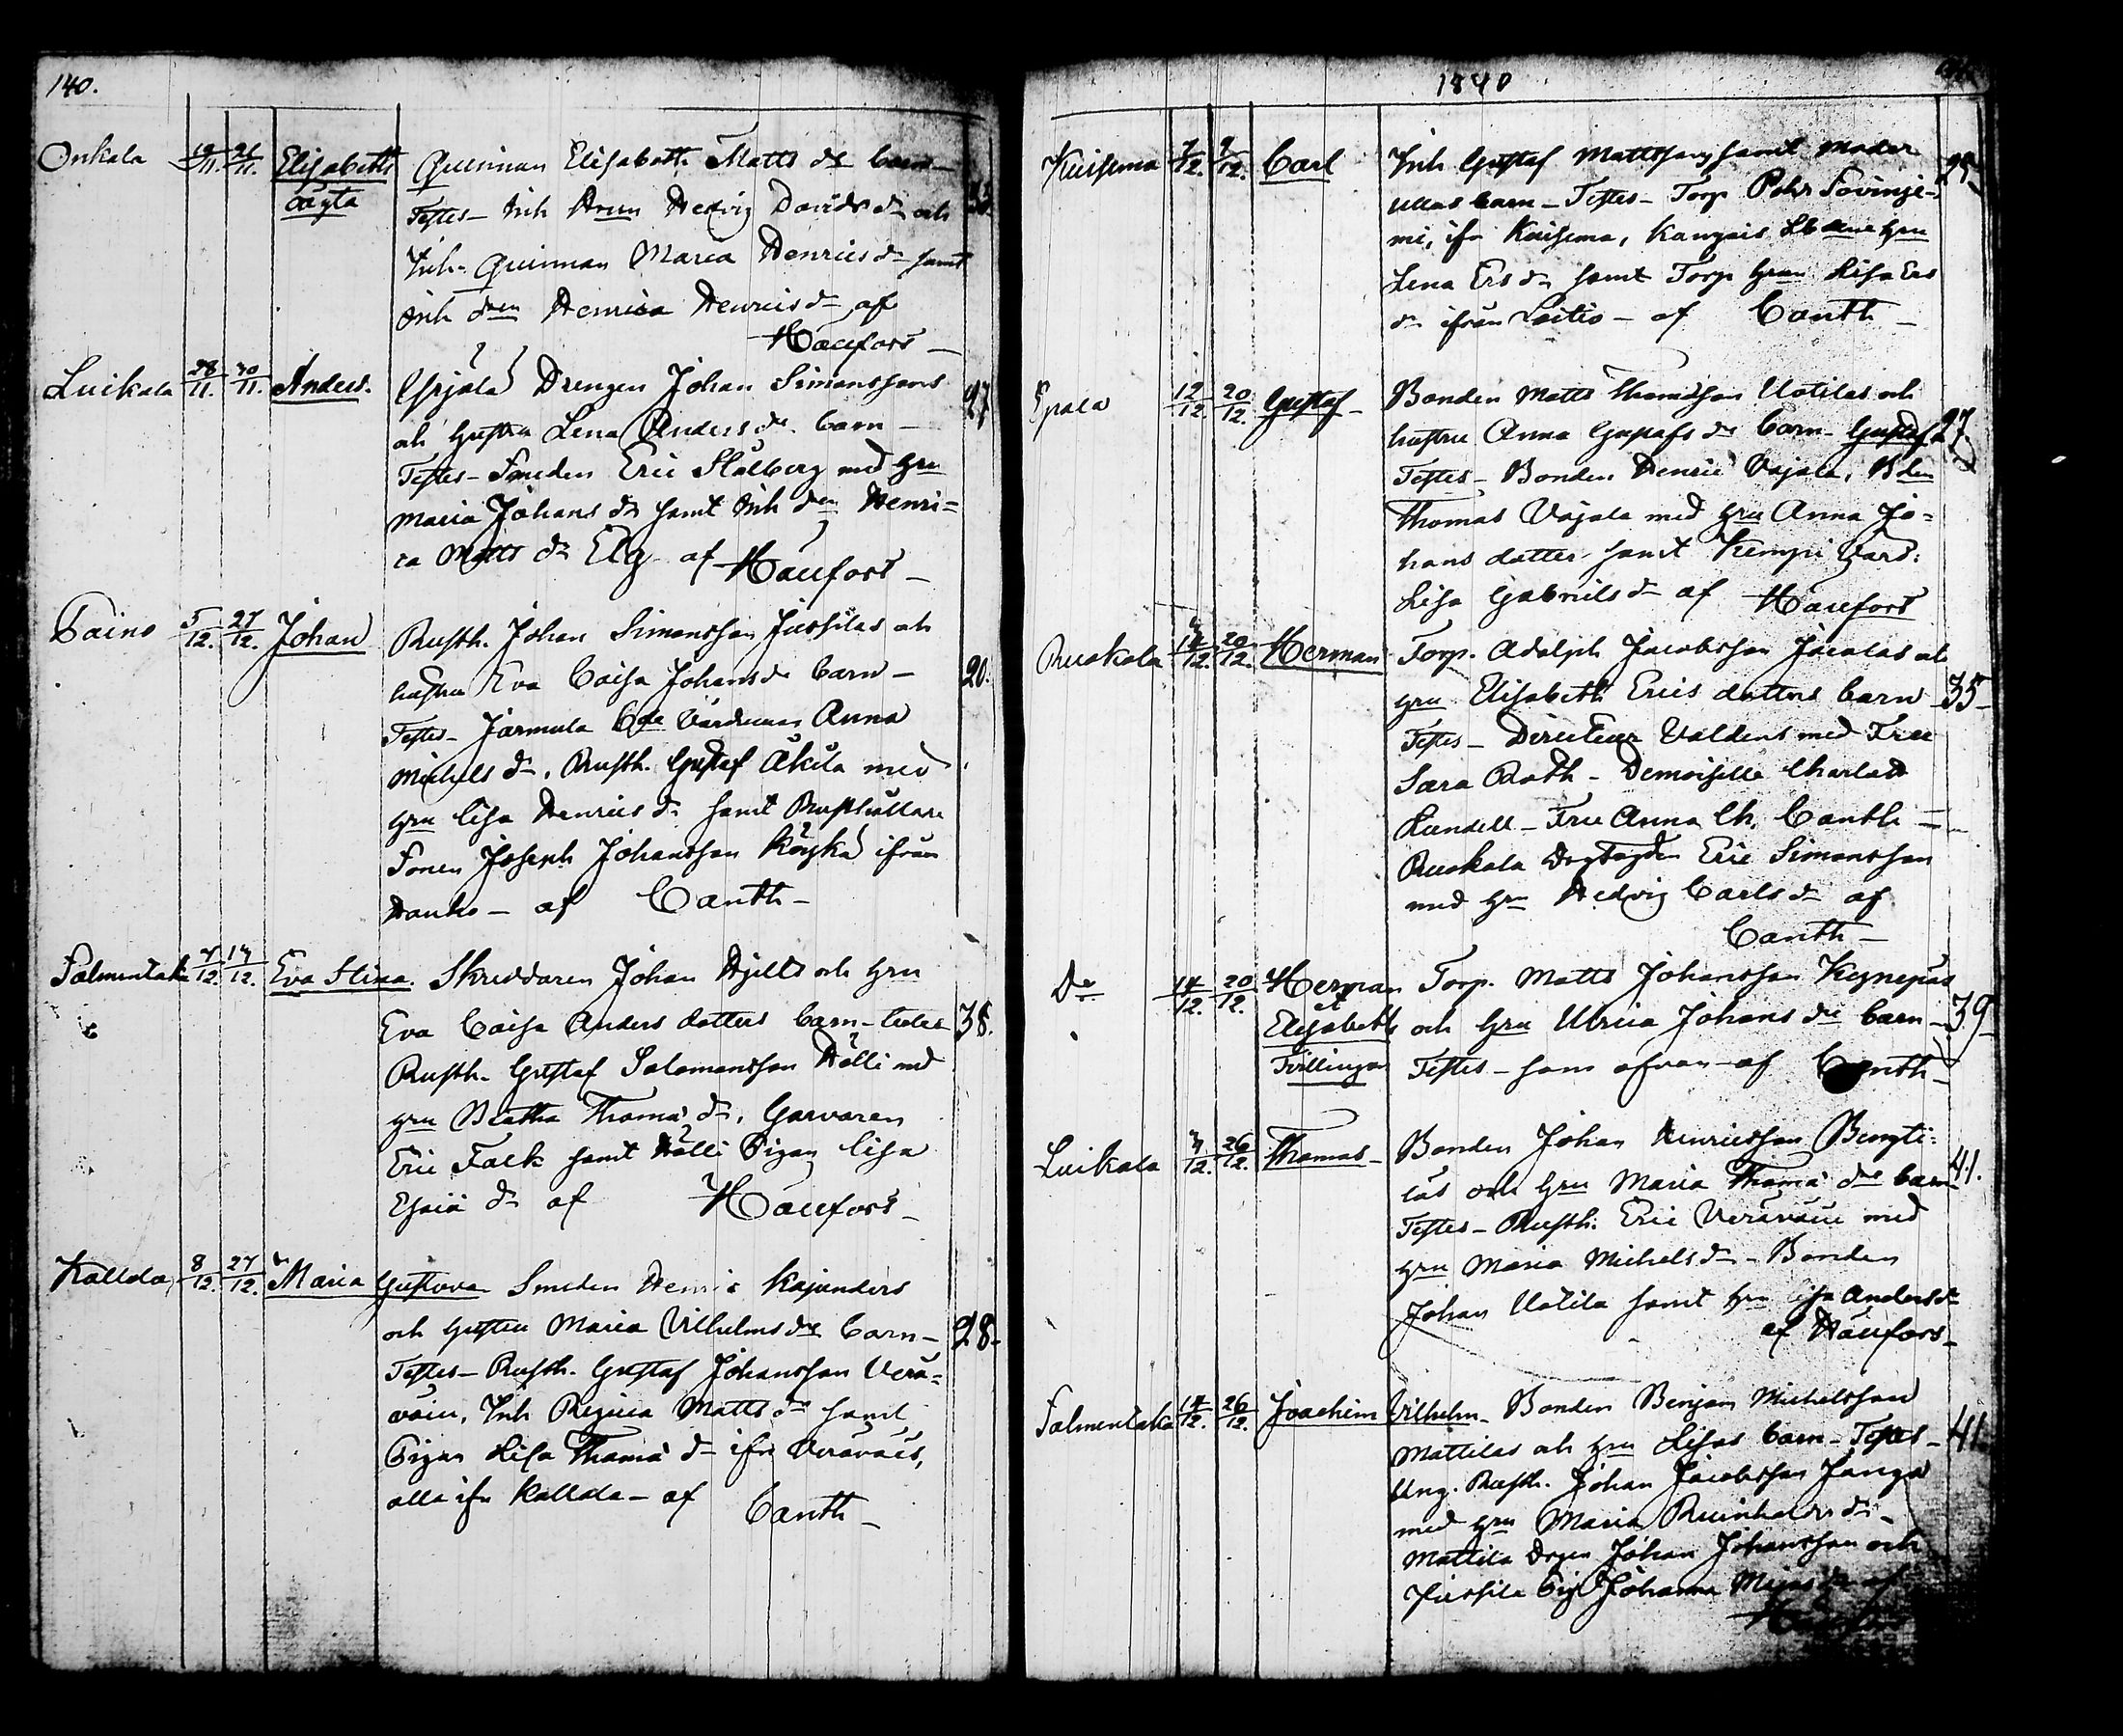 140.
Onkala 19/11. 21/11. Elisabeth Qvinnan Elisabeth Matts dr barn —
oägta Testes — Inh Hrun Hedvig Davids dr och
Inh. Qvinnan Maria Henrics dr samt
Inh drn Henrica Henrics dr af
Haufors —
Luikala 28/11. 30/11. Anders. Yrjälä Drengen Johan Simonssons 27
och hustru Lena Anders dr barn —
Testes — Smeden Eric Stålberg med hru
Maria Johans dr samt Inh drn Henri=
ca Matts dr Elg af Haufors —
Paino 5/12. 27/12. Johan Rusth. Johan Simonsson Jussilas och
hustru Eva Caisa Johans dr barn — 20.
Testes — Jarmula Anna
Michels dr, Rusth. Gustaf Äkilä med
hru Lisa Henrics dr samt Rusthållare
Sonen Joseph Johansson Köykä ifrån
Hauho — af Canth —
Salmentaka 7/12. 17/12. Eva Stina. Skreddaren Johan Hjelts och hru
Eva Caisa Anders dotters barn — testes 38.
Rusth. Gustaf Salomonsson Hölli med
hru Beatha Thomæ dr, Garvaren
Eric Falk samt Hölli Pigan Lisa
Esaiæ dr af Haufors —
Kallda 8/12. 27/12. Maria Gustava Smeden Henric Kajanders
och hustru Maria Vilhelms drs barn — 28.
Testes — Rusth. Gustaf Johansson Verä=
väin, Inh Regina Matts dr samt
Pigan Lisa Thomæ dr ifr Veräväis,
alla ifr Kallda — af Canth —
1840
Kuisema 7/12. 9/12. Carl Inh Gustaf Mattssons samt Moder 25
Ullas barn — Testes — Torp Pehr Sovinje-
mi, ifr Kuisema, Kangais hru
Lena Ers dr samt Torp hrun Lisa Ers
dr ifrån Laitio — af Canth —
12/12. 20/12. Gustaf — Bonden Matts Thomasson Uotilas och
hustru Anna Gustafs drs barn — Gustaf 27
Testes — Bonden Henric Vajala, Bden
Thomas Vajala med hru Anna Jo=
hans dotter samt Kempi Vard:
Lisa Gabriels dr af Haufors
Ruokola 14/12. 20/12. Herman Torp. Adolph Jacobsson Jacalas och
hru Elisabeth Erics dotters barn — 35 —
Testes — Directeur Valdens med Fru
Sara Roth — Demoiselle Charlott
Lundell — Fru Anna Ch. Canth —
Ruokola Eric Simonsson
med hru Hedvig Carls dr af
Canth —
Do 14/12. 20/12. Herman Torp. Matts Johansson Keynepäs
et
Elisabeth och hru Ulrica Johans drs barn — 39
Tvillingar Testes — som ofvan — af Canth —
Luikala 7/12. 26/12. Thomas — Bonden Johan Henricsson Bengti=
läs och hru Maria Thomæ drs barn 41.
Testes — Rusth. Eric Veräväin med
hru Maria Michels dr — Bonden
Johan Uotila samt hru Lisa Anders dr
af Haufors —
Salmentaka 14/12. 26/12. Joachim Vilhelm — Bonden Benjam Michelsson
Mattilas och hru Lisas barn — Testes — 41.
Ung. Rusth. Johan Jacobsson Janga
med hru Maria Reinholds dr —
Mattila Drgen Johan Johansson och
Jussila Pig Johanna af